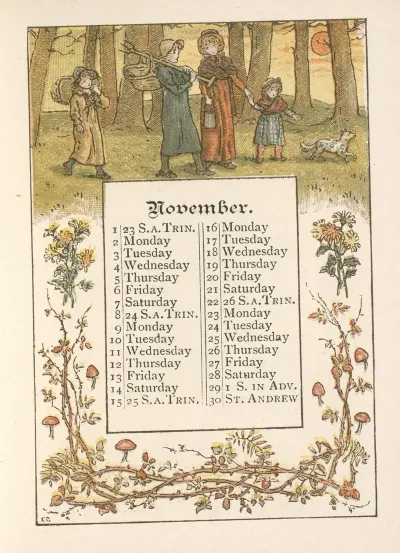 November.
1 23 S.A.TRIN.
2 Monday
3 Tuesday
4 Wednesday
5 Thursday
6 Friday
7 Saturday
8 24 S.A.TRIN.
9 Monday
10 Tuesday
11 Wednesday
12 Thursday
13 Friday
14 Saturday
15 25 S.A.TRIN.
16 Monday
17 Tuesday
18 Wednesday
19 Thursday
20 Friday
21 Saturday
22 26 S.A.TRIN.
23 Monday
24 Tuesday
25 Wednesday
26 Thursday
27 Friday
28 Saturday
29 1 S. IN ADV.
30 ST. ANDREW
KG